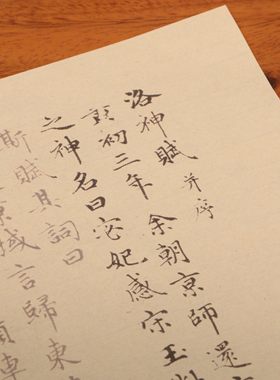 洛神賦 并序
黃初三年 余朝京師 還
之神 名曰宓妃 感宋玉
斯賦 其詞曰
京域 言歸東
傾車